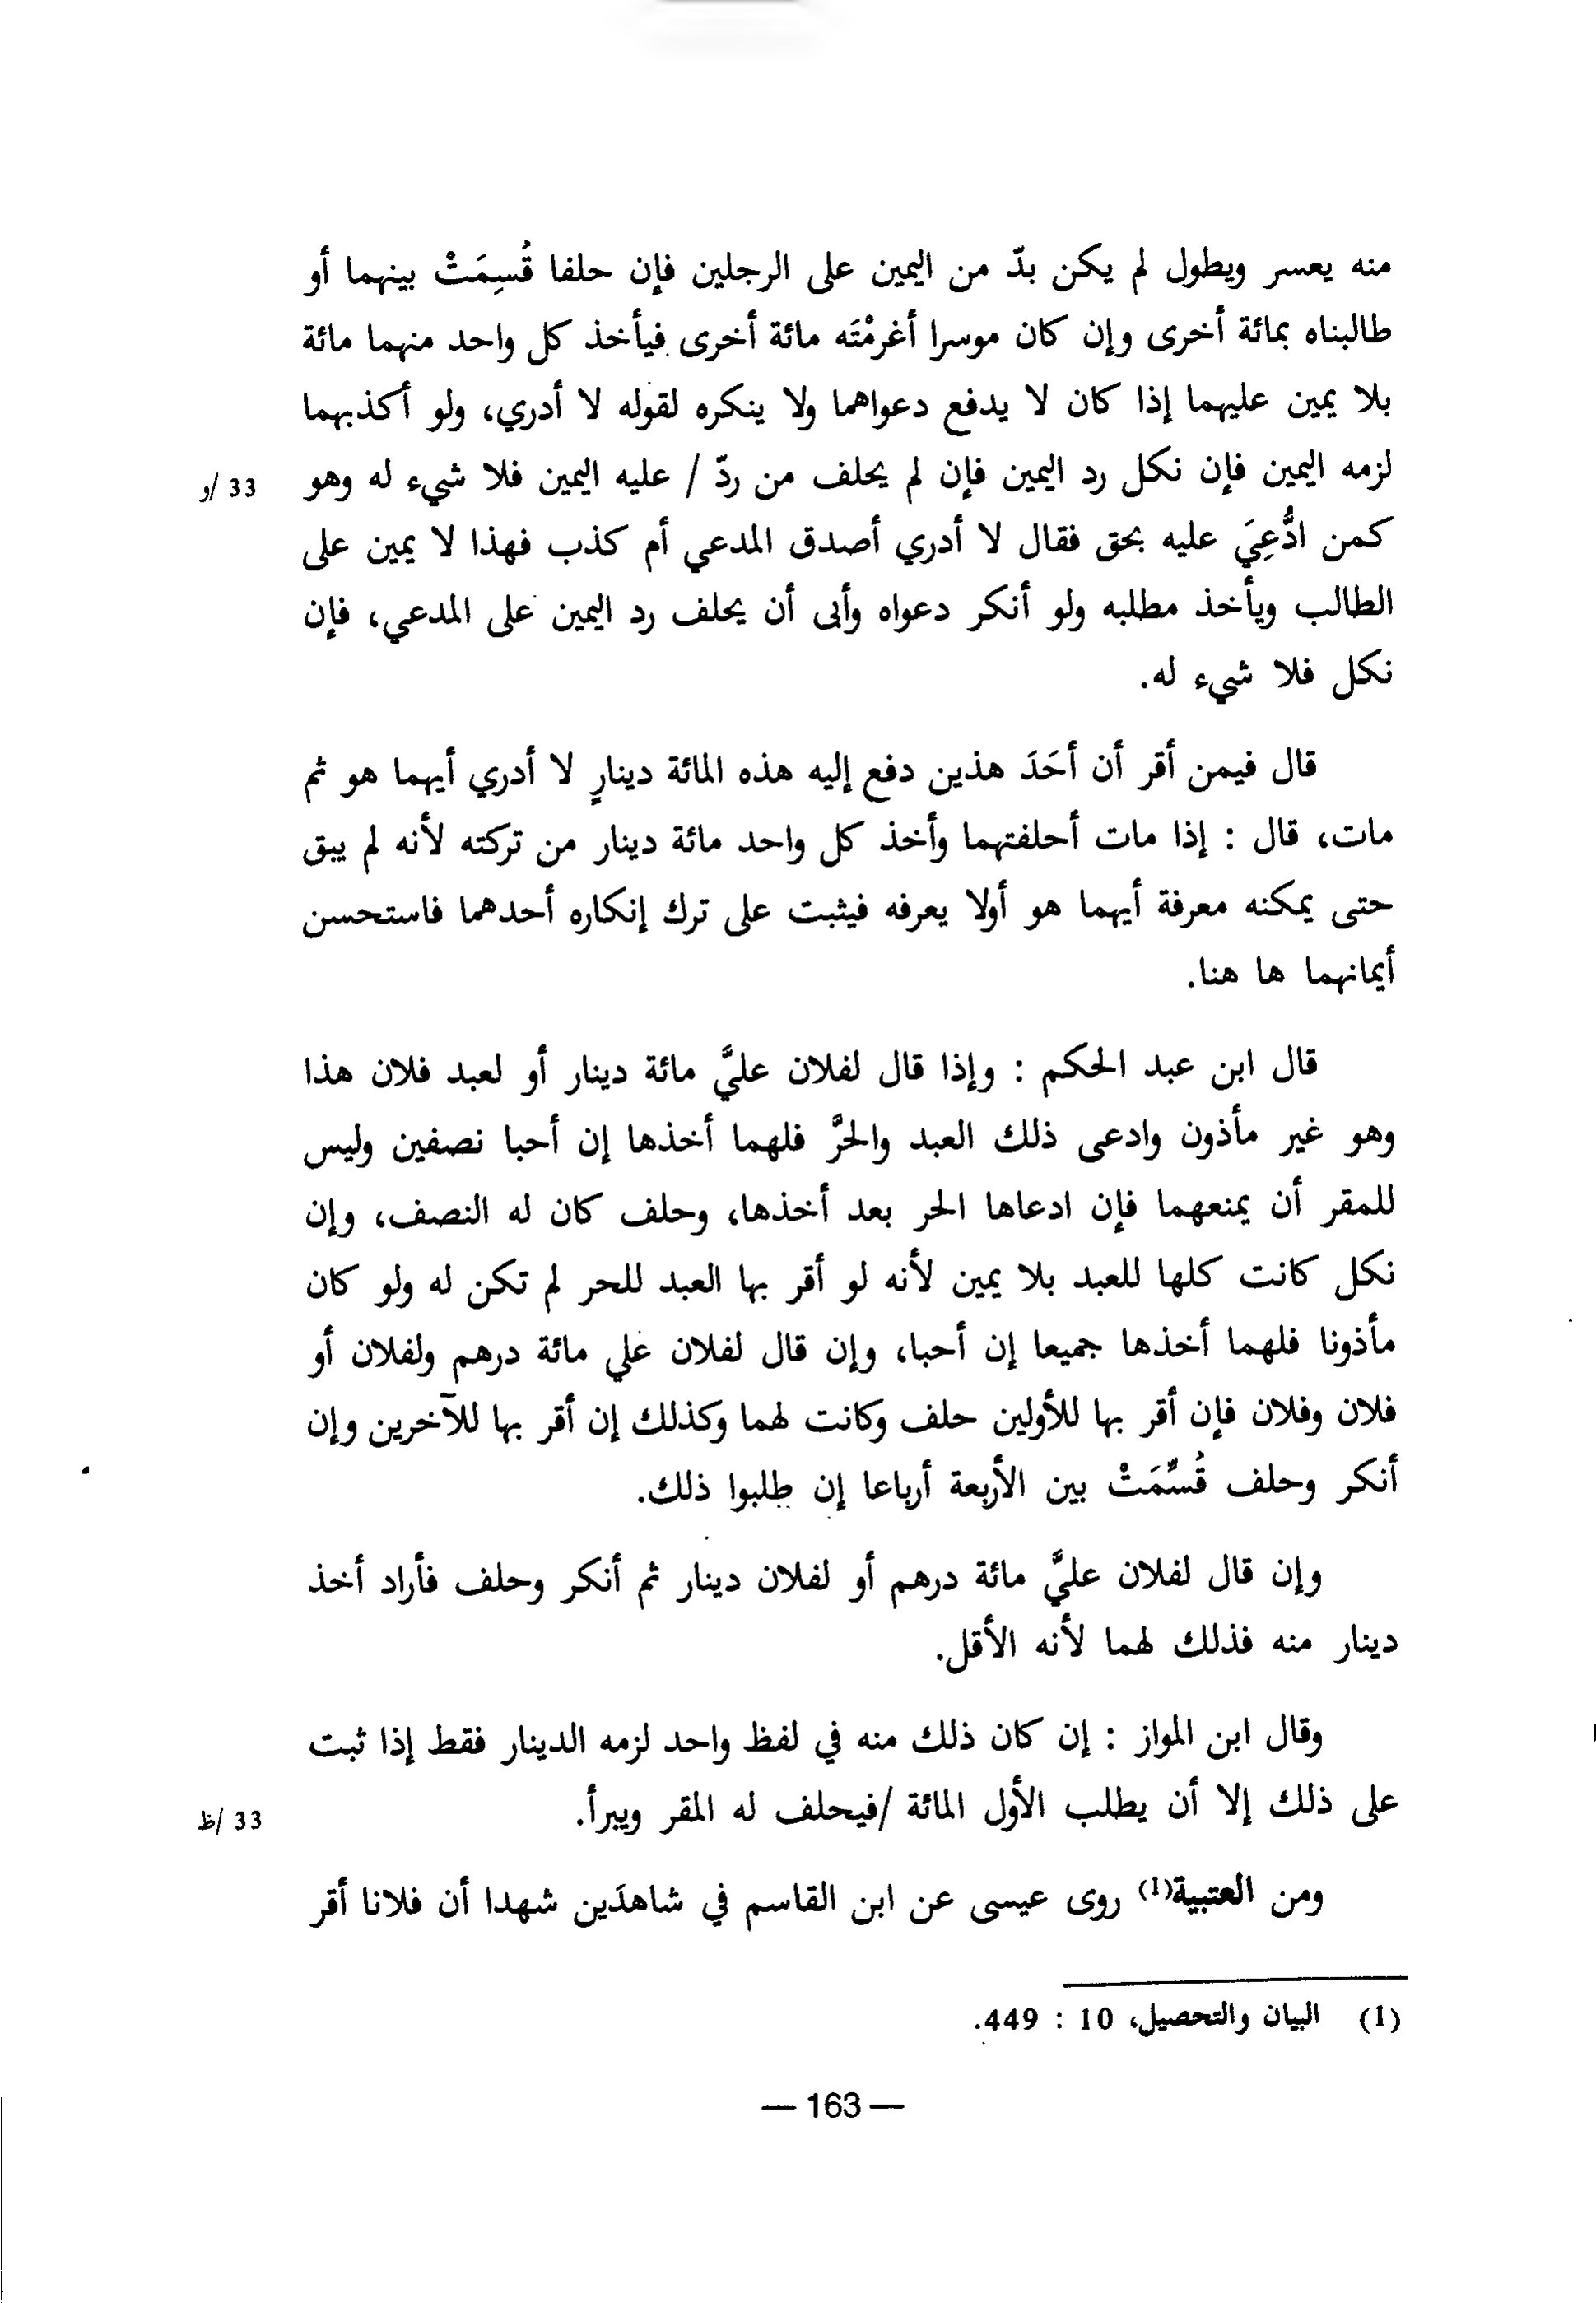 منه يعسر ويطول لم يكن بدّ من اليمين على الرجلين فإن حلفا قُسِمَتْ بينهما أو
طالبناه بمائة أخرى وإن كان موسرا أغرمْتَه مائة أخرى فيأخذ كل واحد منهما مائة
بلا يمين عليهما إذا كان لا يدفع دعواهما ولا ينكره لقوله لا أدري، ولو أكذبهما
لزمه اليمين فإن نكل رد اليمين فإن لم يحلف من ردّ / عليه اليمين فلا شيء له وهو 33 /و
كمن ادُّعِيَ عليه بحق فقال لا أدري أصدق المدعي أم كذب فهذا لا يمين على
الطالب ويأخذ مطلبه ولو أنكر دعواه وأبى أن يحلف رد اليمين على المدعي، فإن
نكل فلا شيء له.
قال فيمن أقر أن أحَدَ هذين دفع إليه هذه المائة دينارٍ لا أدري أيهما هو ثم
مات، قال : إذا مات أحلفتهما وأخذ كل واحد مائة دينار من تركته لأنه لم يبق
حتى يمكنه معرفة أيهما هو أولا يعرفه فيثبت على ترك إنكاره أحدهما فاستحسن
أيمانهما ها هنا.
قال ابن عبد الحكم : وإذا قال لفلان عليَّ مائة دينار أو لعبد فلان هذا
وهو غير مأذون وادعى ذلك العبد والحرَّ فلهما أخذها إن أحبا نصفين وليس
للمقر أن يمنعهما فإن ادعاها الحر بعد أخذها، وحلف كان له النصف، وإن
نكل كانت كلها للعبد بلا يمين لأنه لو أقر بها العبد للحر لم تكن له ولو كان
مأذونا فلهما أخذها جميعا إن أحبا، وإن قال لفلان علي مائة درهم ولفلان أو
فلان وفلان فإن أقر بها للأولين حلف وكانت لهما وكذلك إن أقر بها للآخرين وإن
أنكر وحلف قُسِّمَتْ بين الأربعة أرباعا إن طلبوا ذلك.
وإن قال لفلان عليَّ مائة درهم أو لفلان دينار ثم أنكر وحلف فأراد أخذ
دينار منه فذلك لهما لأنه الأقل.
وقال ابن المواز : إن كان ذلك منه في لفظ واحد لزمه الدينار فقط إذا ثبت
على ذلك إلا أن يطلب الأول المائة /فيحلف له المقر ويبرأ. 33 /ظ
ومن العتبية(1) روى عيسى عن ابن القاسم في شاهدَين شهدا أن فلانا أقر
(1) البيان والتحصيل، 10 : 449.
— 163 —